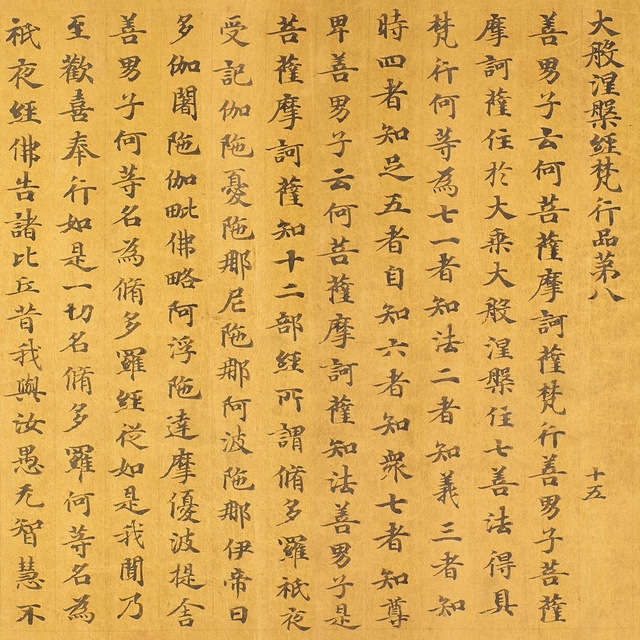 大般涅槃經梵行品第八 十五
善男子云何菩薩摩訶薩梵行善男子菩薩
摩訶薩住於大乘大般涅槃住七善法得具
梵行何等為七一者知法二者知義三者知
時四者知足五者自知六者知衆七者知尊
卑善男子云何菩薩摩訶薩知法善男子是
菩薩摩訶薩知十二部經所謂脩多羅祇夜
受記伽陁憂陁那尼陁那阿波陁那伊帝曰
多伽闍陁伽毗佛略阿浮陁達摩優波提舍
善男子何等名為脩多羅經從如是我聞乃
至歡喜奉行如是一切名脩多羅何等名為
祇夜經佛告諸比丘昔我與汝愚无智慧不